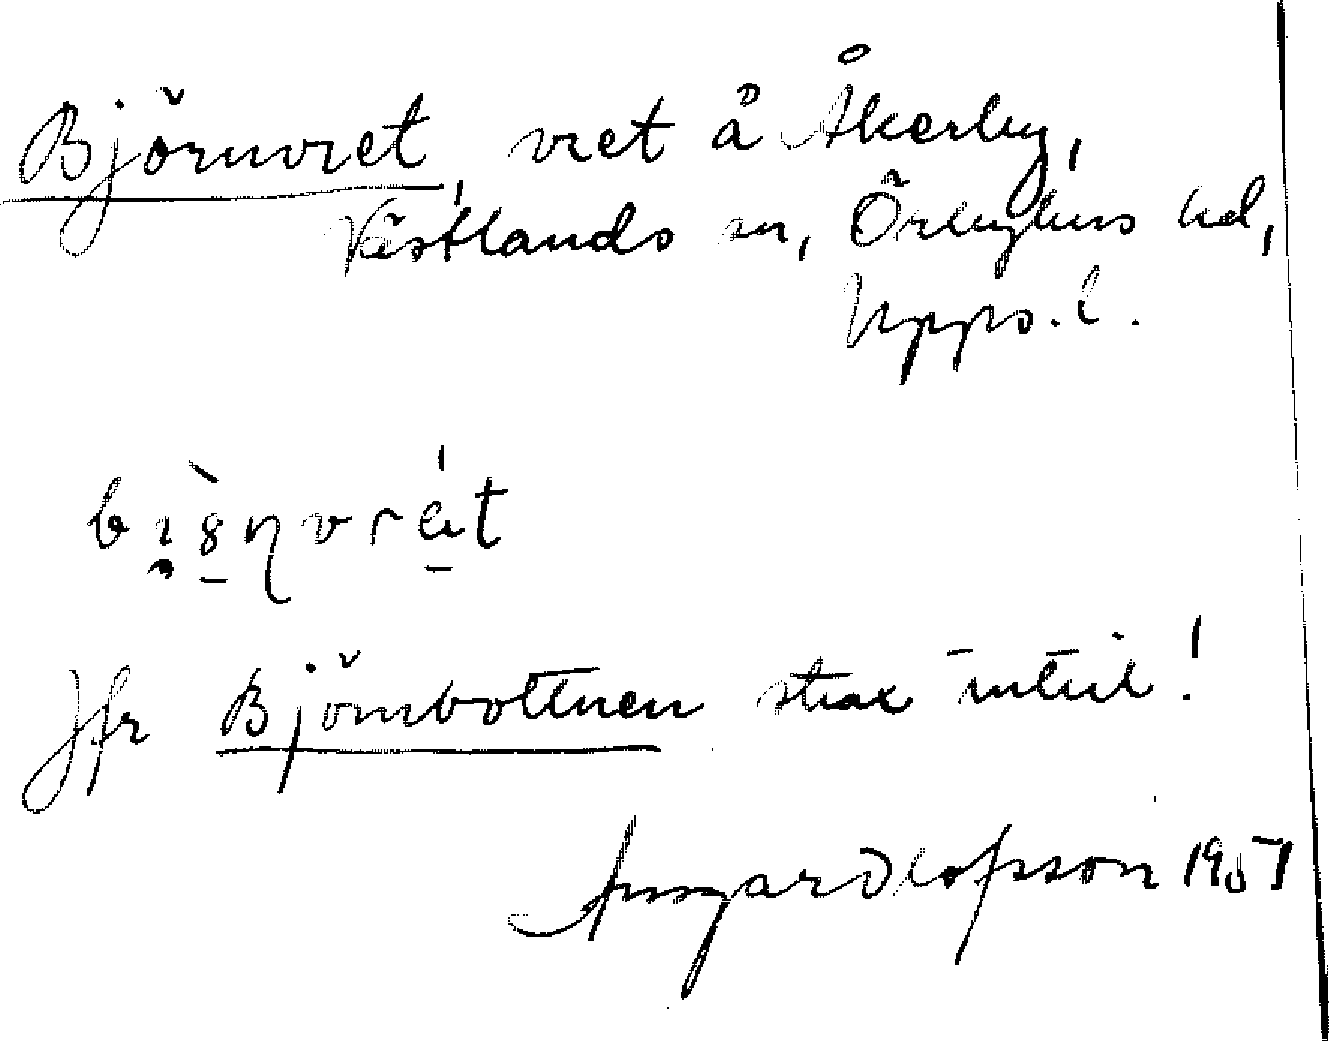 Björnvret, vret å Åkerby,
Västlands sn, Örbyhus hd,
Upps. l.
Jfr Björnbottnen strax intill!
Ansgar Olofsson 1951